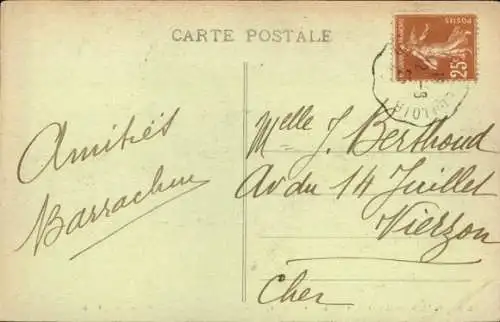 CARTE POSTALE
POSTES
25c
Amitiés
Barrachin
Melle J. Berthoud
Av du 14 Juillet
Vierzon
Cher